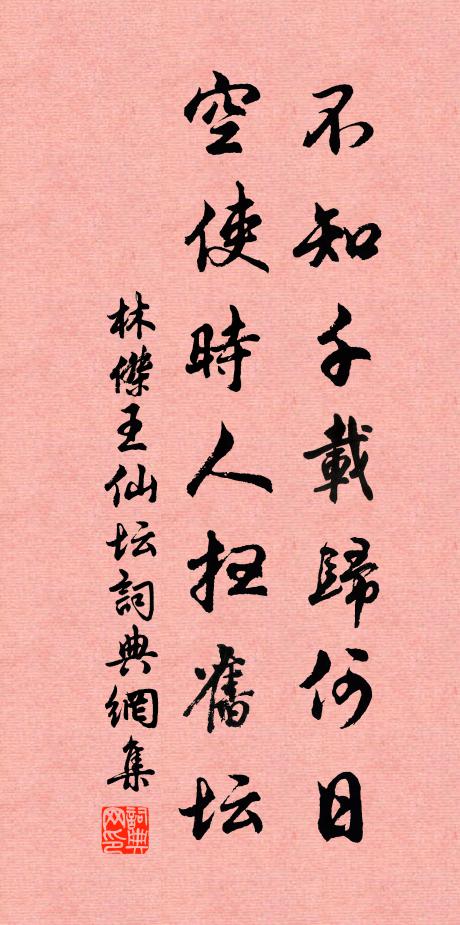 不知千載歸何日
空使時人扫舊坛
林傑王仙坛詞典網集
詞典网印